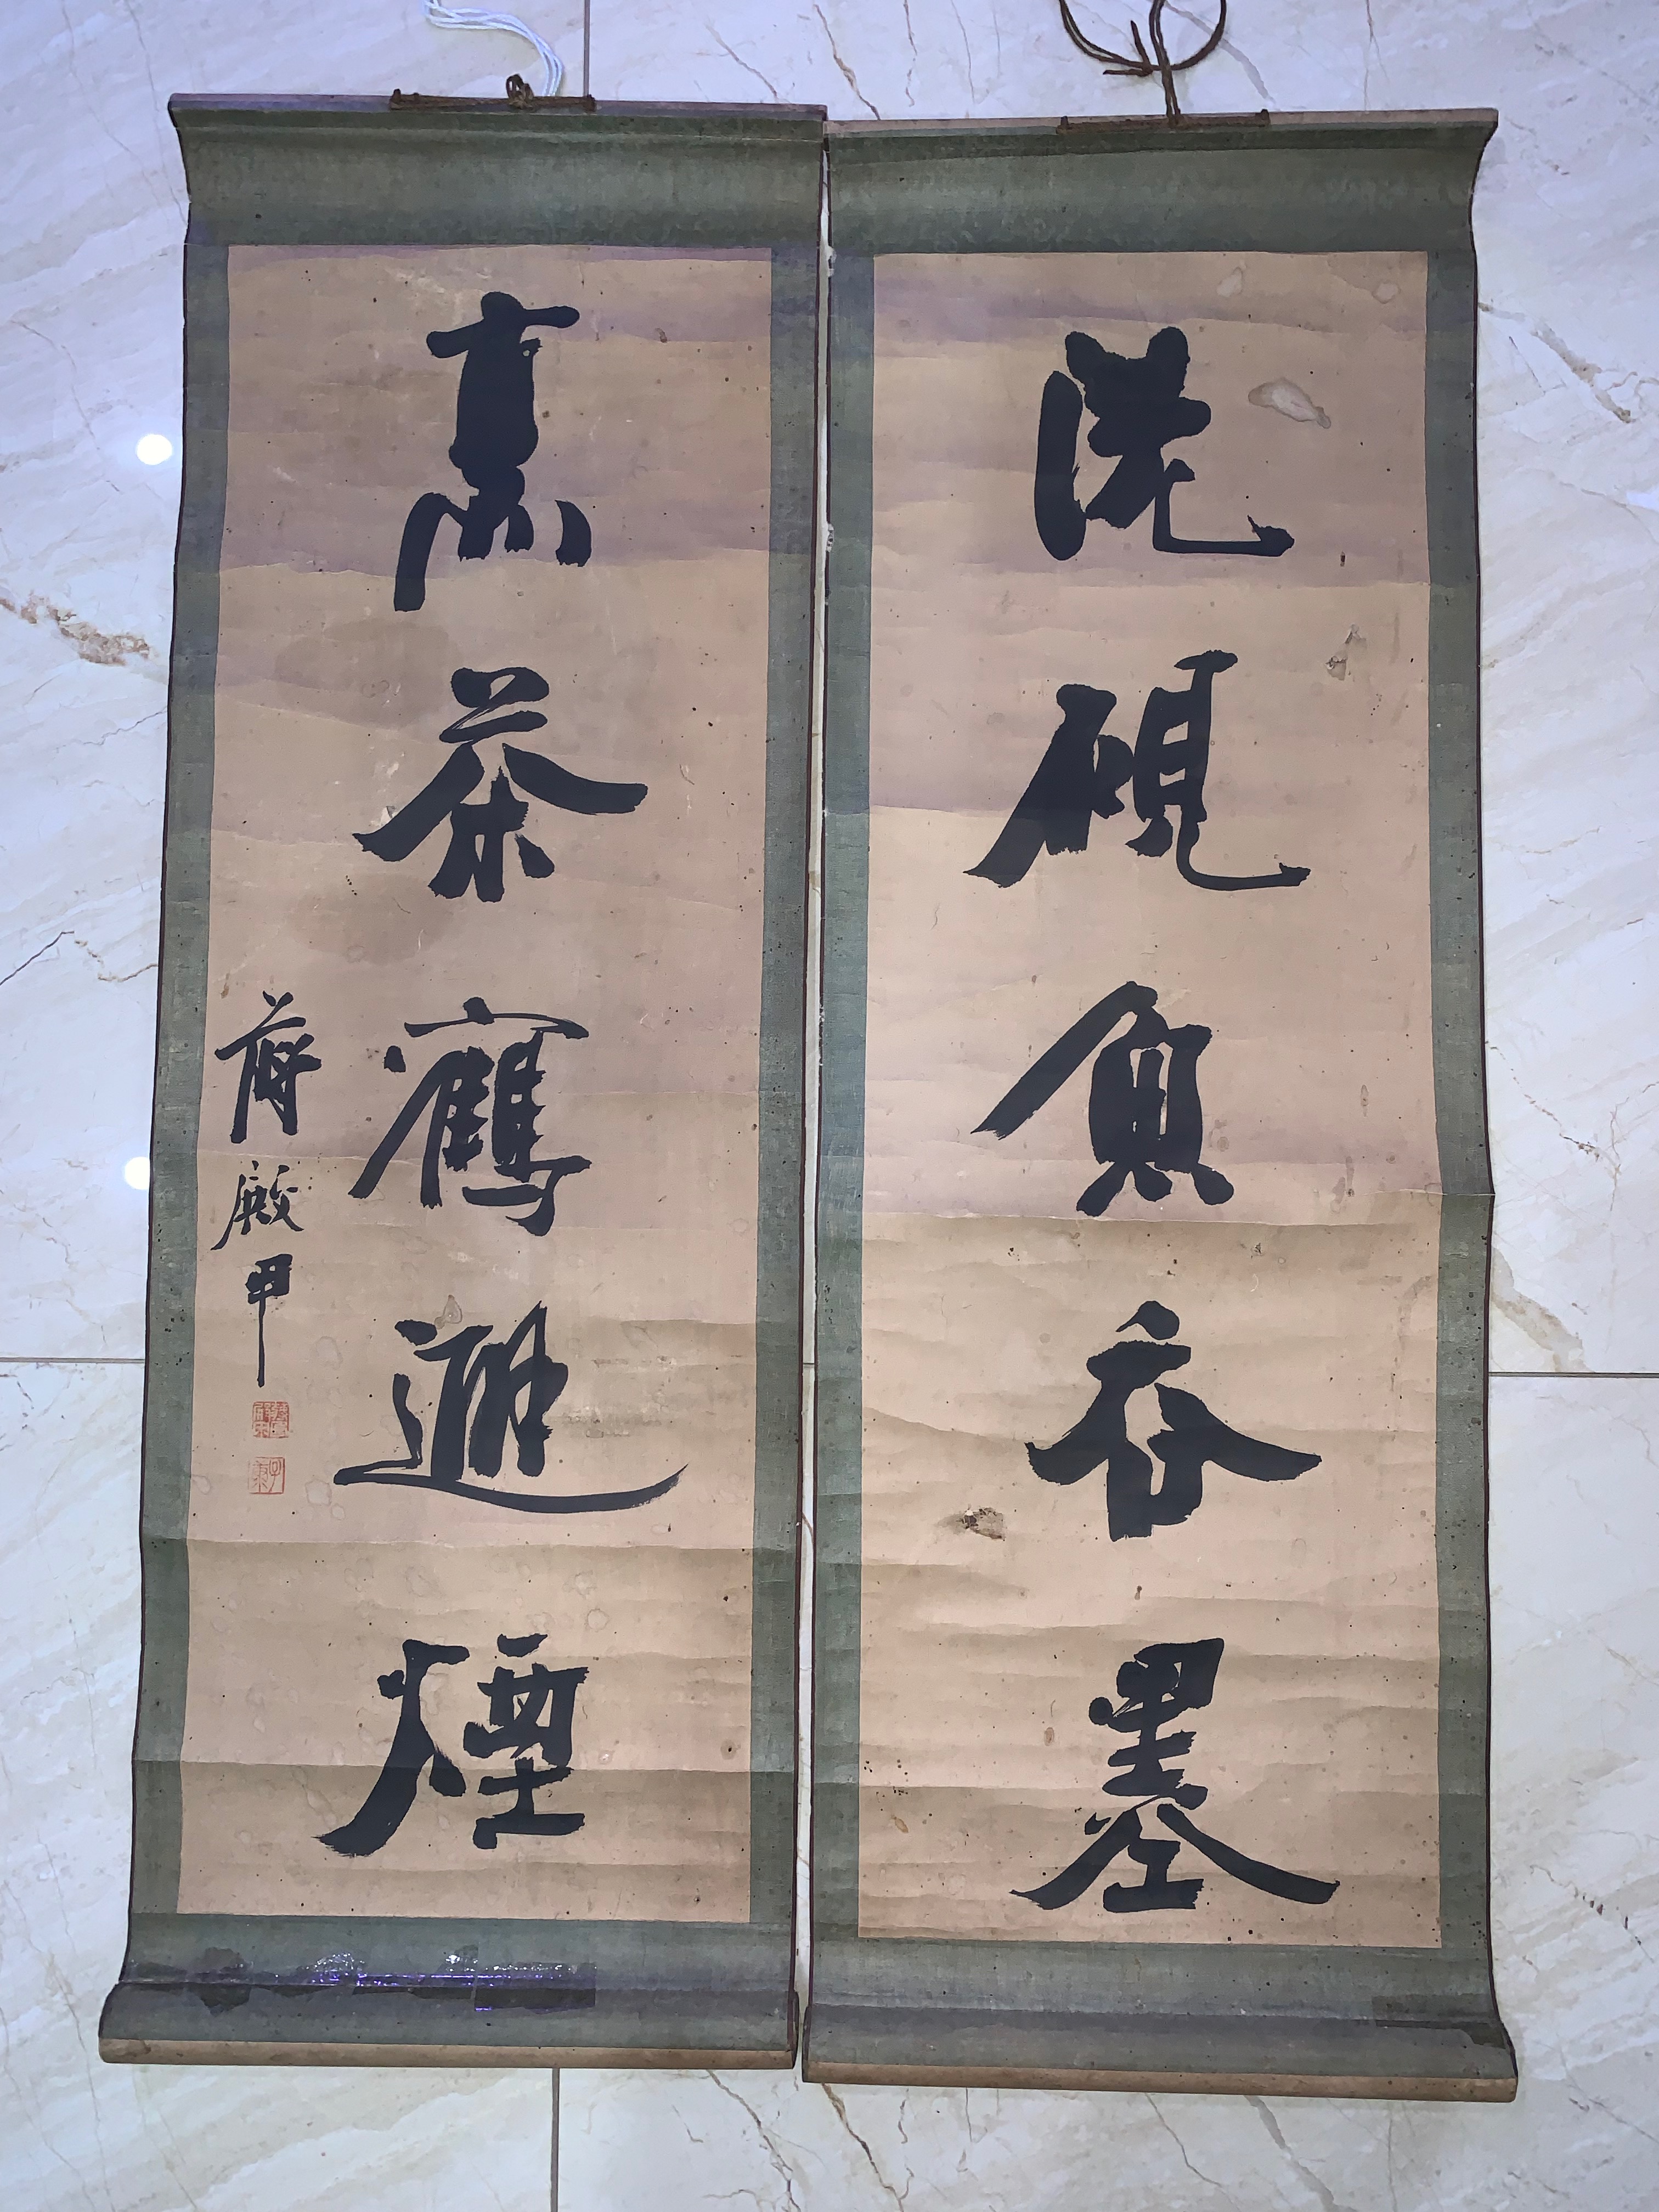 洗硯魚吞墨
烹茶鶴避煙
蔣殿甲